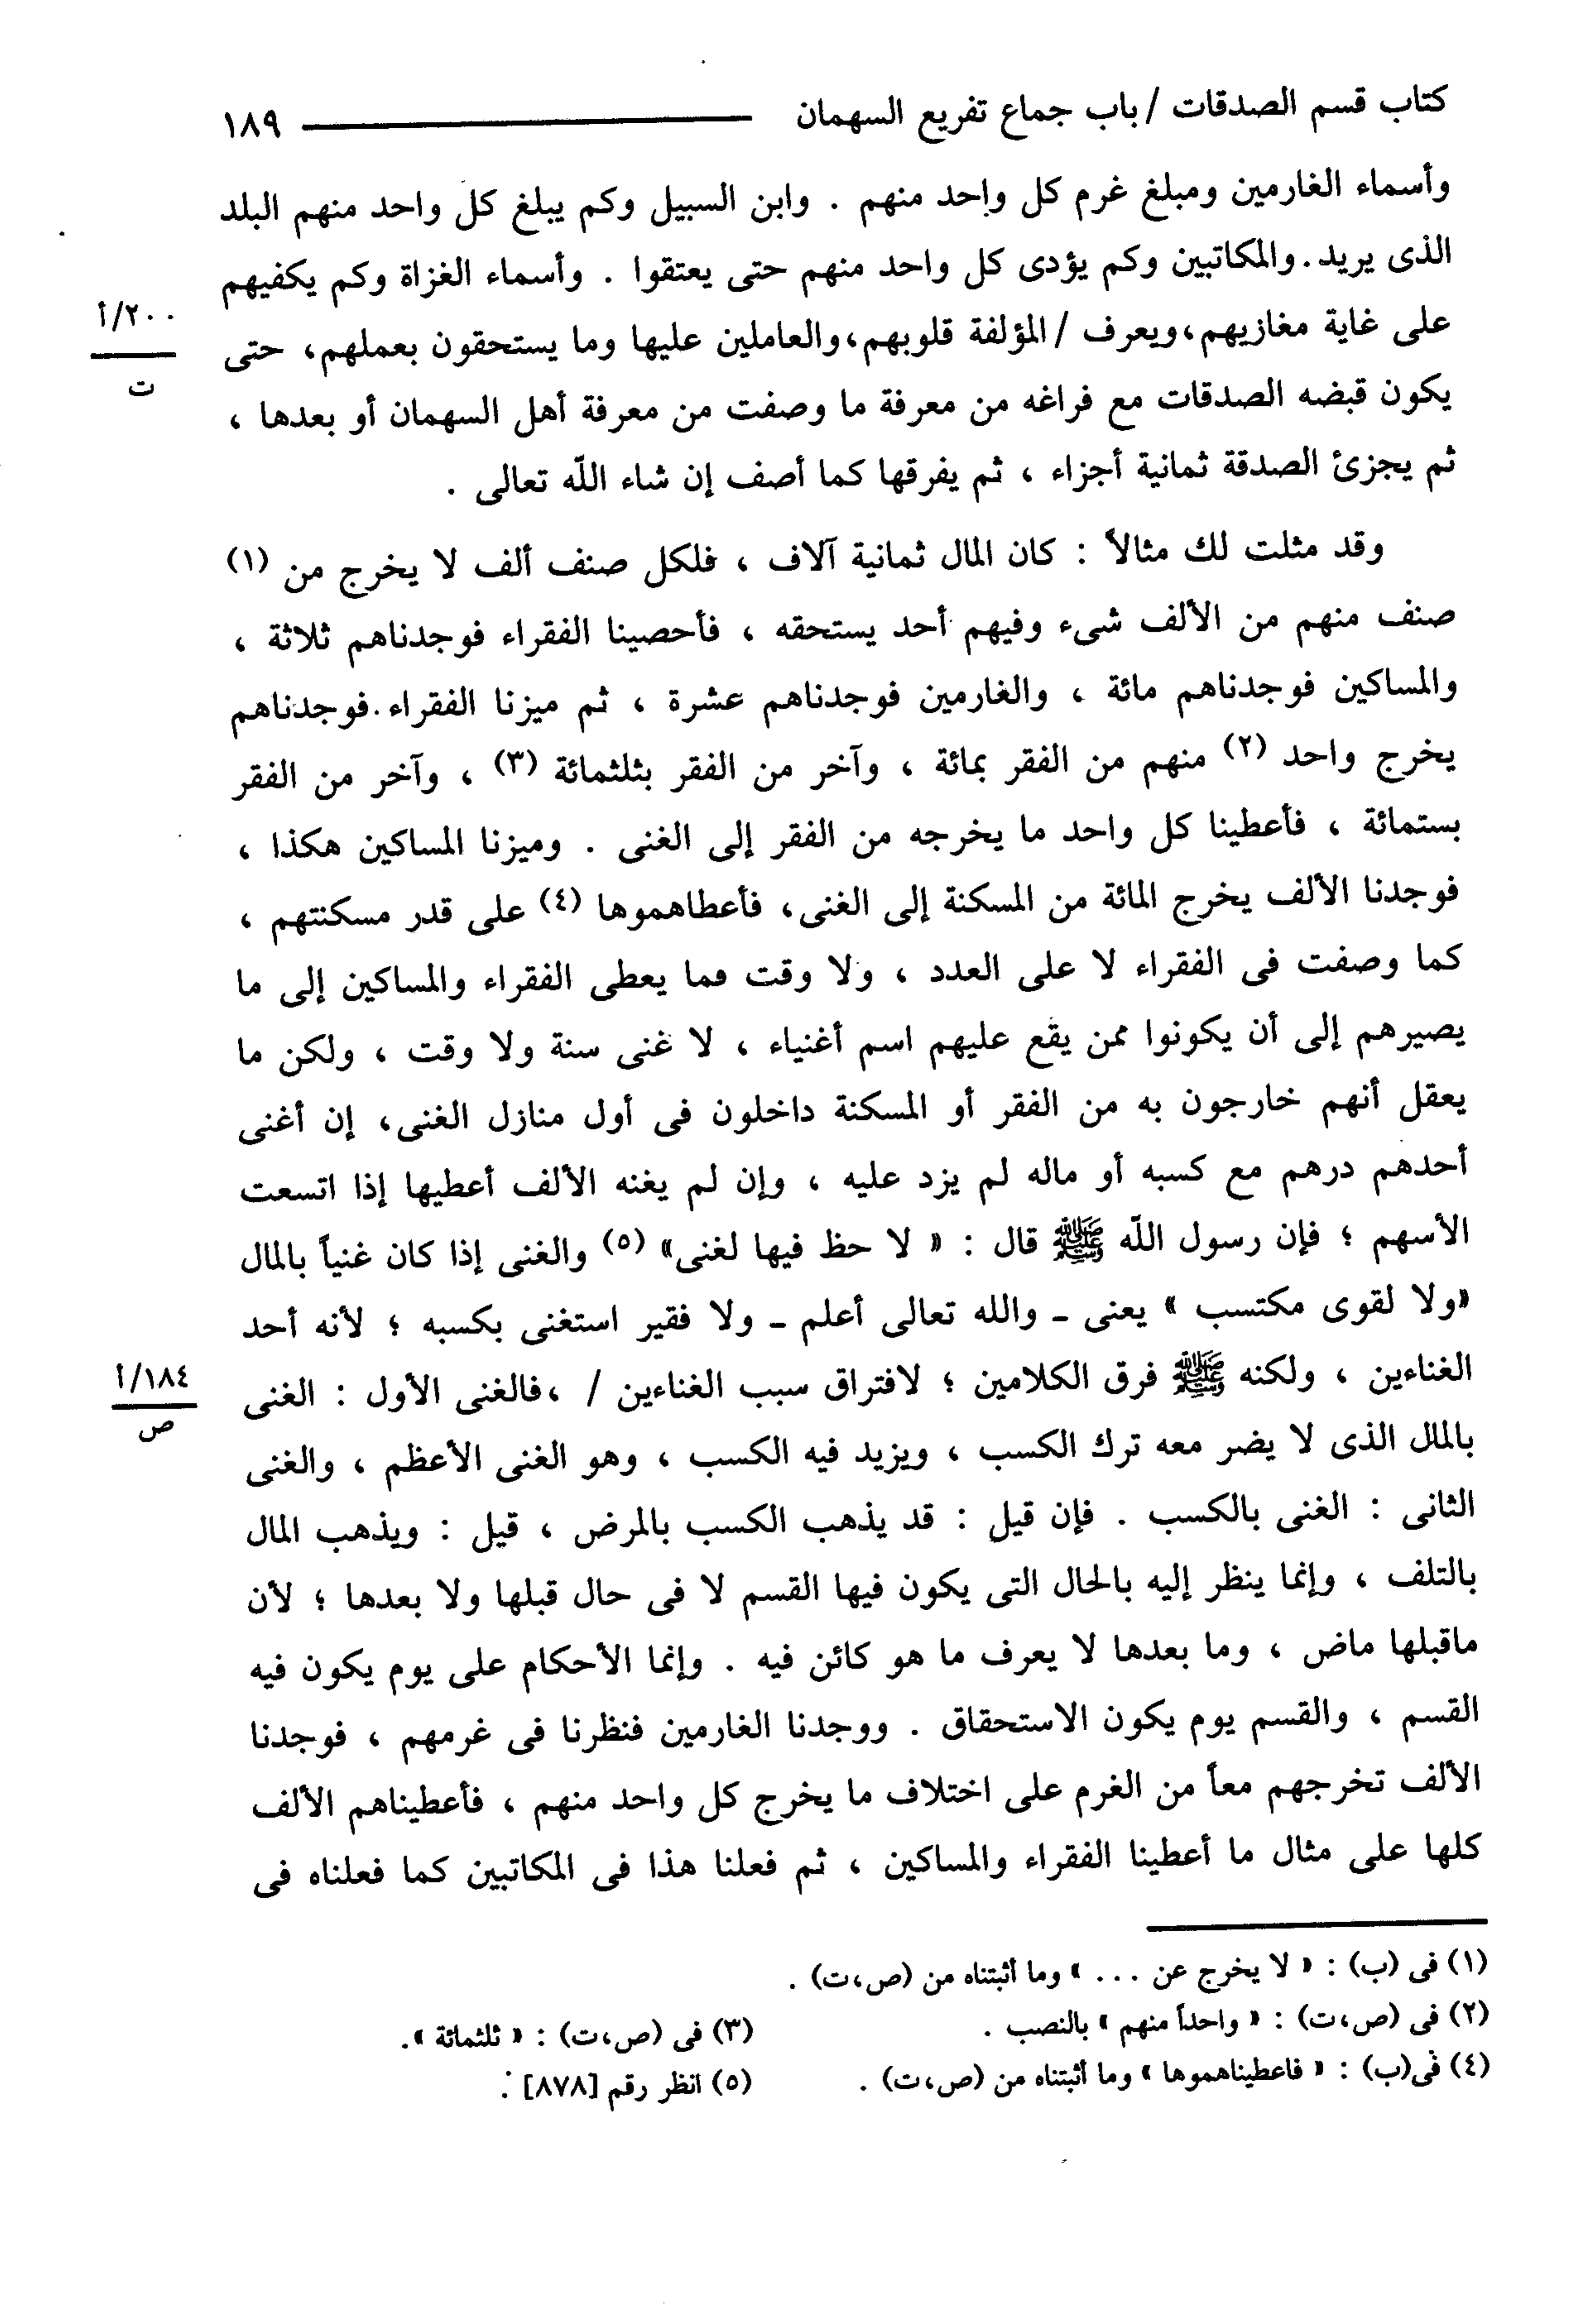 كتاب قسم الصدقات / باب جماع تفريع السهمان ١٨٩
وأسماء الغارمين ومبلغ غرم كل واحد منهم . وابن السبيل وكم يبلغ كل واحد منهم البلد
الذى يريد.والمكاتبين وكم يؤدى كل واحد منهم حتى يعتقوا . وأسماء الغزاة وكم يكفيهم
على غاية مغازيهم،ويعرف / المؤلفة قلوبهم،والعاملين عليها وما يستحقون بعملهم، حتى
٢٠٠/أ
ت
يكون قبضه الصدقات مع فراغه من معرفة ما وصفت من معرفة أهل السهمان أو بعدها ،
ثم يجزئ الصدقة ثمانية أجزاء ، ثم يفرقها كما أصف إن شاء اللّه تعالى .
وقد مثلت لك مثالاً : كان المال ثمانية آلاف ، فلكل صنف ألف لا يخرج من (١)
صنف منهم من الألف شىء وفيهم أحد يستحقه ، فأحصينا الفقراء فوجدناهم ثلاثة ،
والمساكين فوجدناهم مائة ، والغارمين فوجدناهم عشرة ، ثم ميزنا الفقراء.فوجدناهم
يخرج واحد (٢) منهم من الفقر بمائة ، وآخر من الفقر بثلثمائة (٣) ، وآخر من الفقر
بستمائة ، فأعطينا كل واحد ما يخرجه من الفقر إلى الغنى . وميزنا المساكين هكذا ،
فوجدنا الألف يخرج المائة من المسكنة إلى الغنى، فأعطاهموها (٤) على قدر مسكنتهم ،
كما وصفت فى الفقراء لا على العدد ، ولا وقت فما يعطى الفقراء والمساكين إلى ما
يصيرهم إلى أن يكونوا ممن يقع عليهم اسم أغنياء ، لا غنى سنة ولا وقت ، ولكن ما
يعقل أنهم خارجون به من الفقر أو المسكنة داخلون فى أول منازل الغنى، إن أغنى
أحدهم درهم مع كسبه أو ماله لم يزد عليه ، وإن لم يغنه الألف أعطيها إذا اتسعت
الأسهم ؛ فإن رسول اللّه ﷺ قال : « لا حظ فيها لغنى» (٥) والغنى إذا كان غنياً بالمال
«ولا لقوى مكتسب » يعنى ـ والله تعالى أعلم ـ ولا فقير استغنى بكسبه ؛ لأنه أحد
الغناءين ، ولكنه ﷺ فرق الكلامين ؛ لافتراق سبب الغناءين / ،فالغنى الأول : الغنى
١٨٤/أ
ص
بالمال الذى لا يضر معه ترك الكسب ، ويزيد فيه الكسب ، وهو الغنى الأعظم ، والغنى
الثانى : الغنى بالكسب . فإن قيل : قد يذهب الكسب بالمرض ، قيل : ويذهب المال
بالتلف ، وإنما ينظر إليه بالحال التى يكون فيها القسم لا فى حال قبلها ولا بعدها ؛ لأن
ماقبلها ماض ، وما بعدها لا يعرف ما هو كائن فيه . وإنما الأحكام على يوم يكون فيه
القسم ، والقسم يوم يكون الاستحقاق . ووجدنا الغارمين فنظرنا فى غرمهم ، فوجدنا
الألف تخرجهم معاً من الغرم على اختلاف ما يخرج كل واحد منهم ، فأعطيناهم الألف
كلها على مثال ما أعطينا الفقراء والمساكين ، ثم فعلنا هذا فى المكاتبين كما فعلناه فى
(١) فى (ب) : « لا يخرج عن ... » وما أثبتناه من (ص،ت) .
(٢) فى (ص،ت) : « واحداً منهم » بالنصب . (٣) فى (ص،ت) : « ثلثمائة ».
(٤) فى(ب) : « فاعطيناهموها » وما أثبتناه من (ص،ت) . (٥) انظر رقم [٨٧٨] .